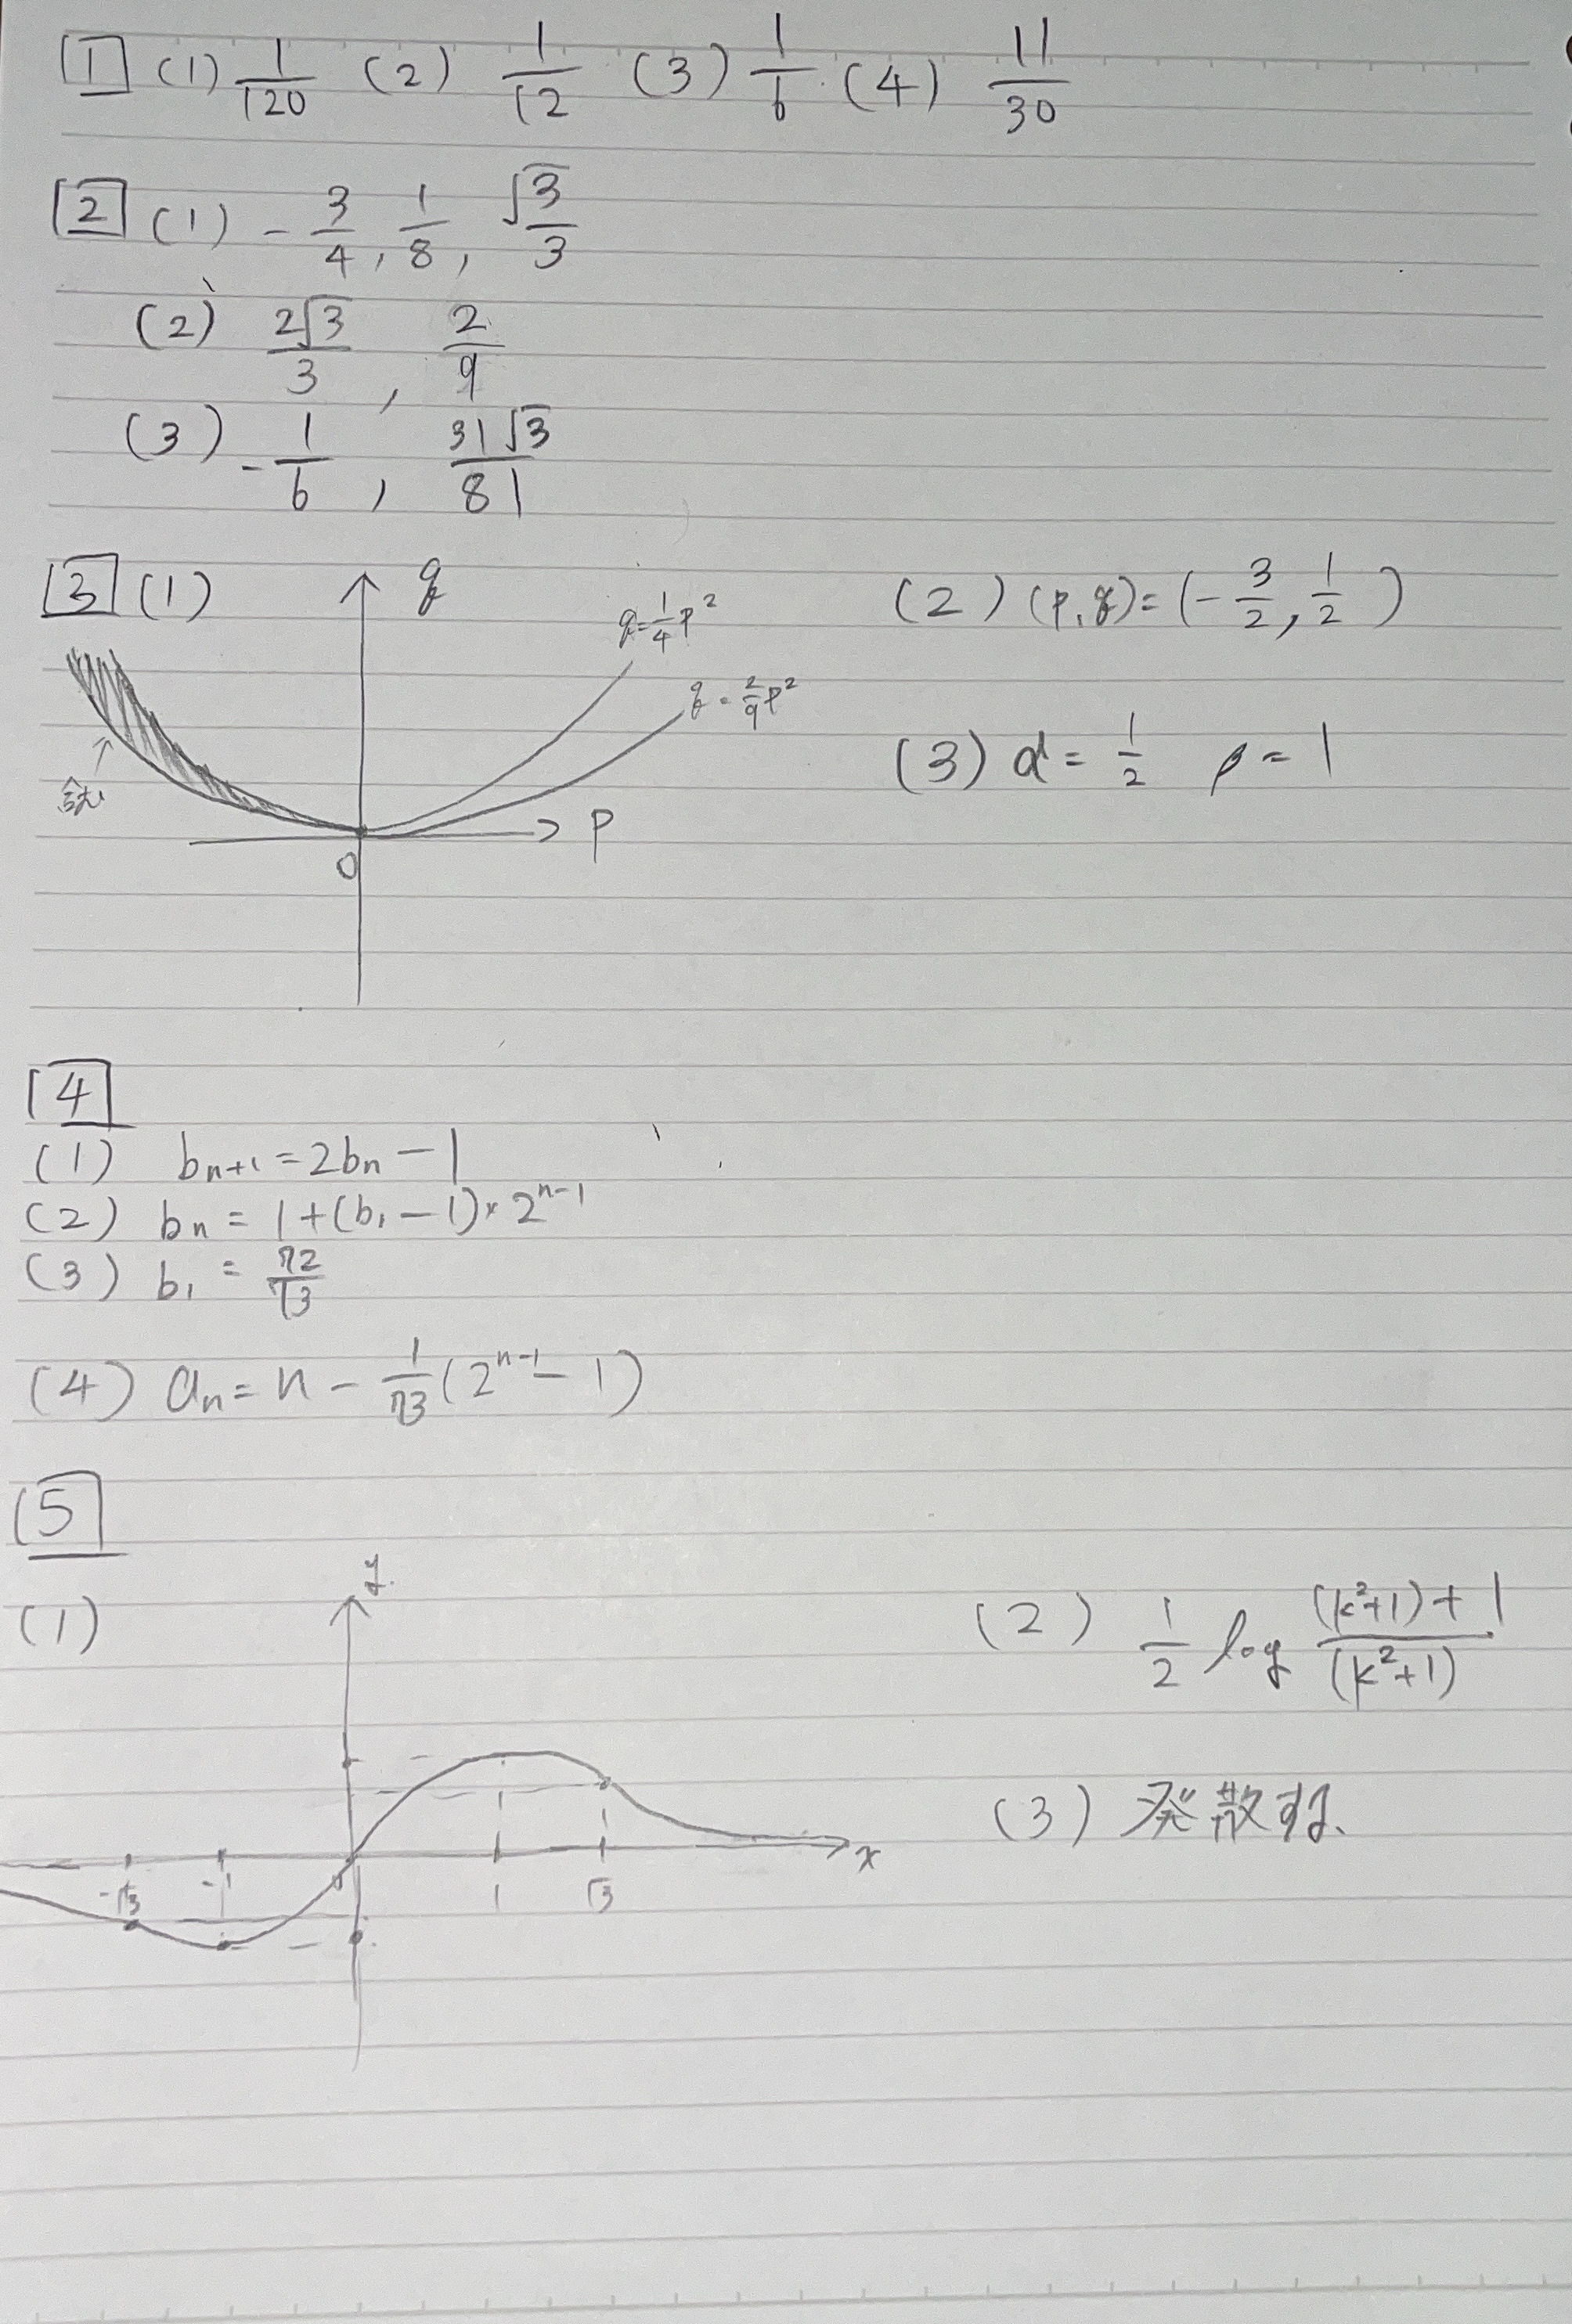 1 (1) 1/120 (2) 1/12 (3) 1/6 (4) 11/30
2 (1) -3/4, 1/8, √3/3
(2) 2√3/3, 2/9
(3) -1/6, 31√3/81
3 (1)
q
q=1/4p²
q=2/9p²
含む
P
O
(2) (p,q)=(-3/2, 1/2)
(3) α=1/2 β=1
4
(1) bn+1=2bn-1
(2) bn=1+(b1-1)×2^n-1
(3) b1=72/73
(4) an=n-1/73(2^n-1-1)
5
(1)
y
-√3 -1 1 √3
x
(2) 1/2 log (k²+1)+1/(k²+1)
(3) 発散する.